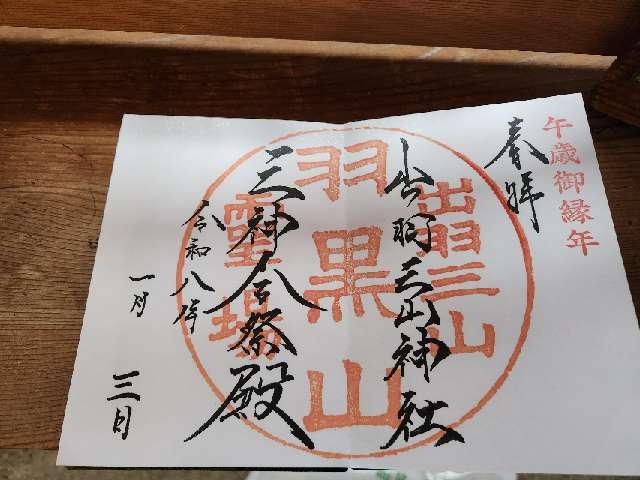 午歳御縁年
奉拝
出羽三山神社
三神合祭殿
令和八年
一月
三日
出羽三山
羽黒山
霊場